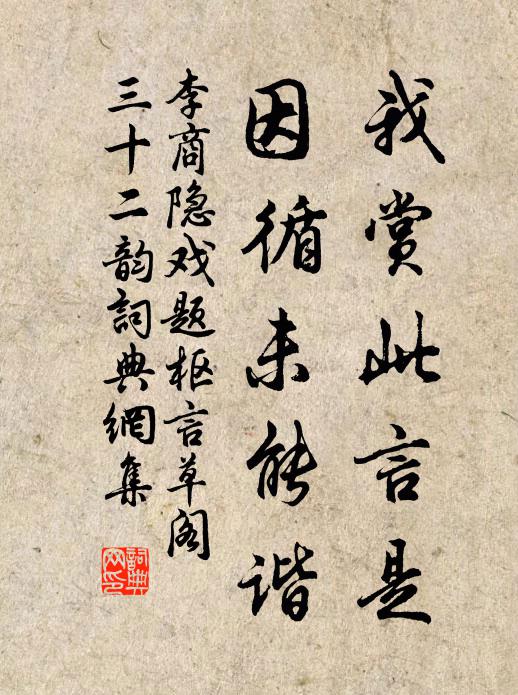 我赏此言是
因循未能谐
李商隐戏题枢言草阁
三十二韵詞典網集
詞典
网印